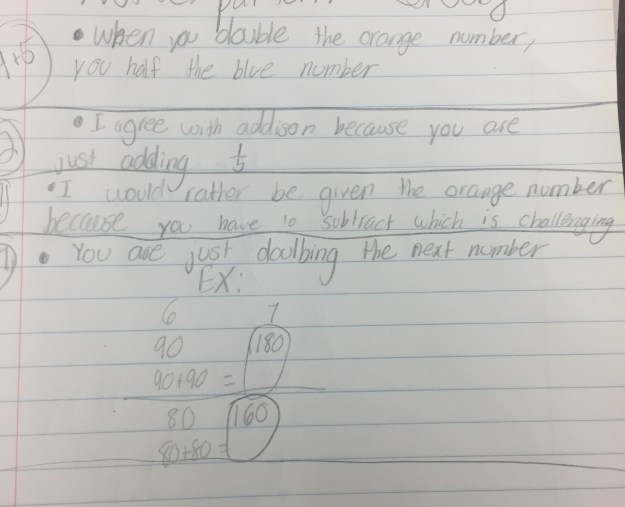 • When you double the orange number,
you half the blue number
• I agree with addison because you are
just adding 1/5
• I would rather be given the orange number
because you have to subtract which is challenging
• You are just doulbing the next number
EX:
6 7
90 180
90+90 =
80 160
80+80=